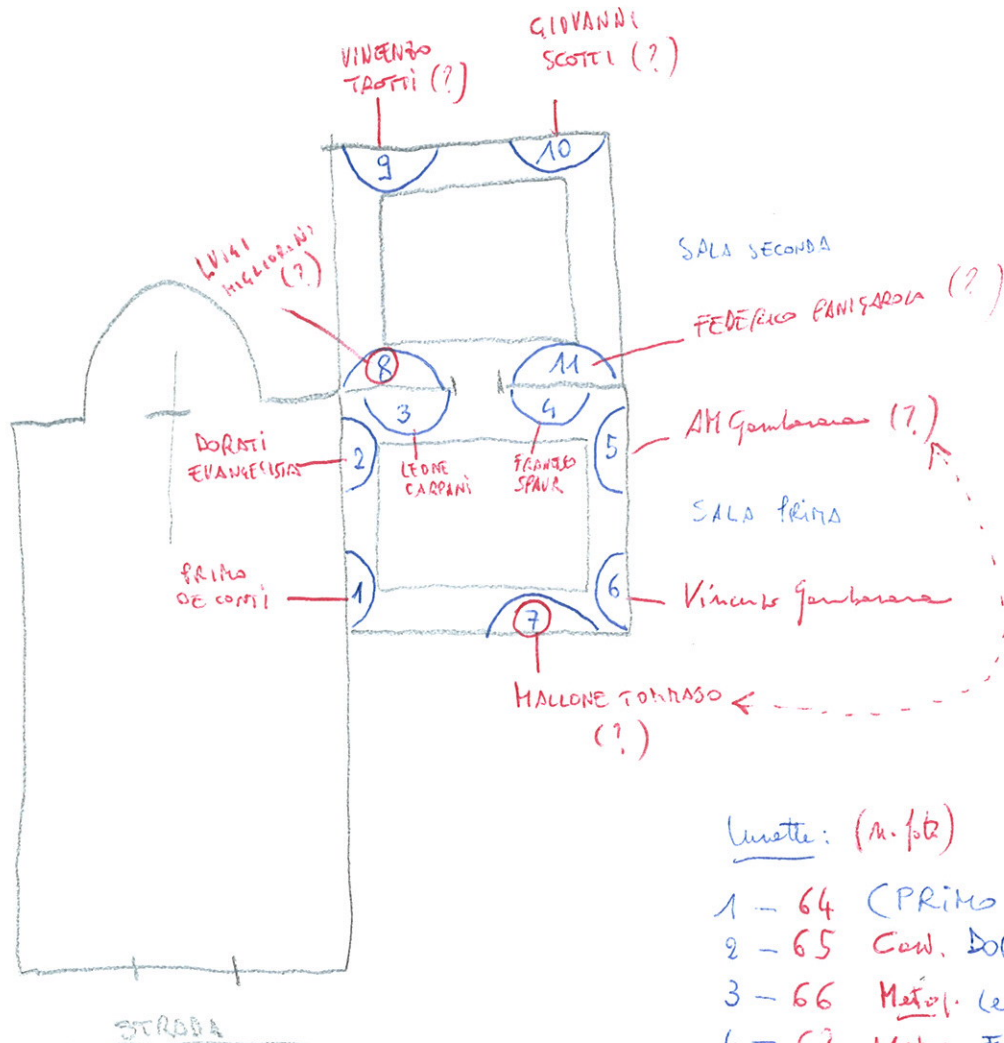 VINCENZO
TROTTI (?)
GIOVANNI
SCOTTI (?)
9
10
LUIGI
MIGLIORINI
(?)
SALA SECONDA
FEDERICO PANIGAROLA (?)
8
11
3
4
DORATI
EVANGELISTA
2
LEONE
CARPANI
FRANZO
SPAUR
5
AM Gambarana (?)
SALA PRIMA
PRIMO
DE CONTI
1
6
Vincenzo Gambarana
7
MALLONE TOMMASO
(?)
STRADA
Lunette: (n. foto)
1 - 64 (PRIMO
2 - 65 Con. DOR
3 - 66 Metop. Le